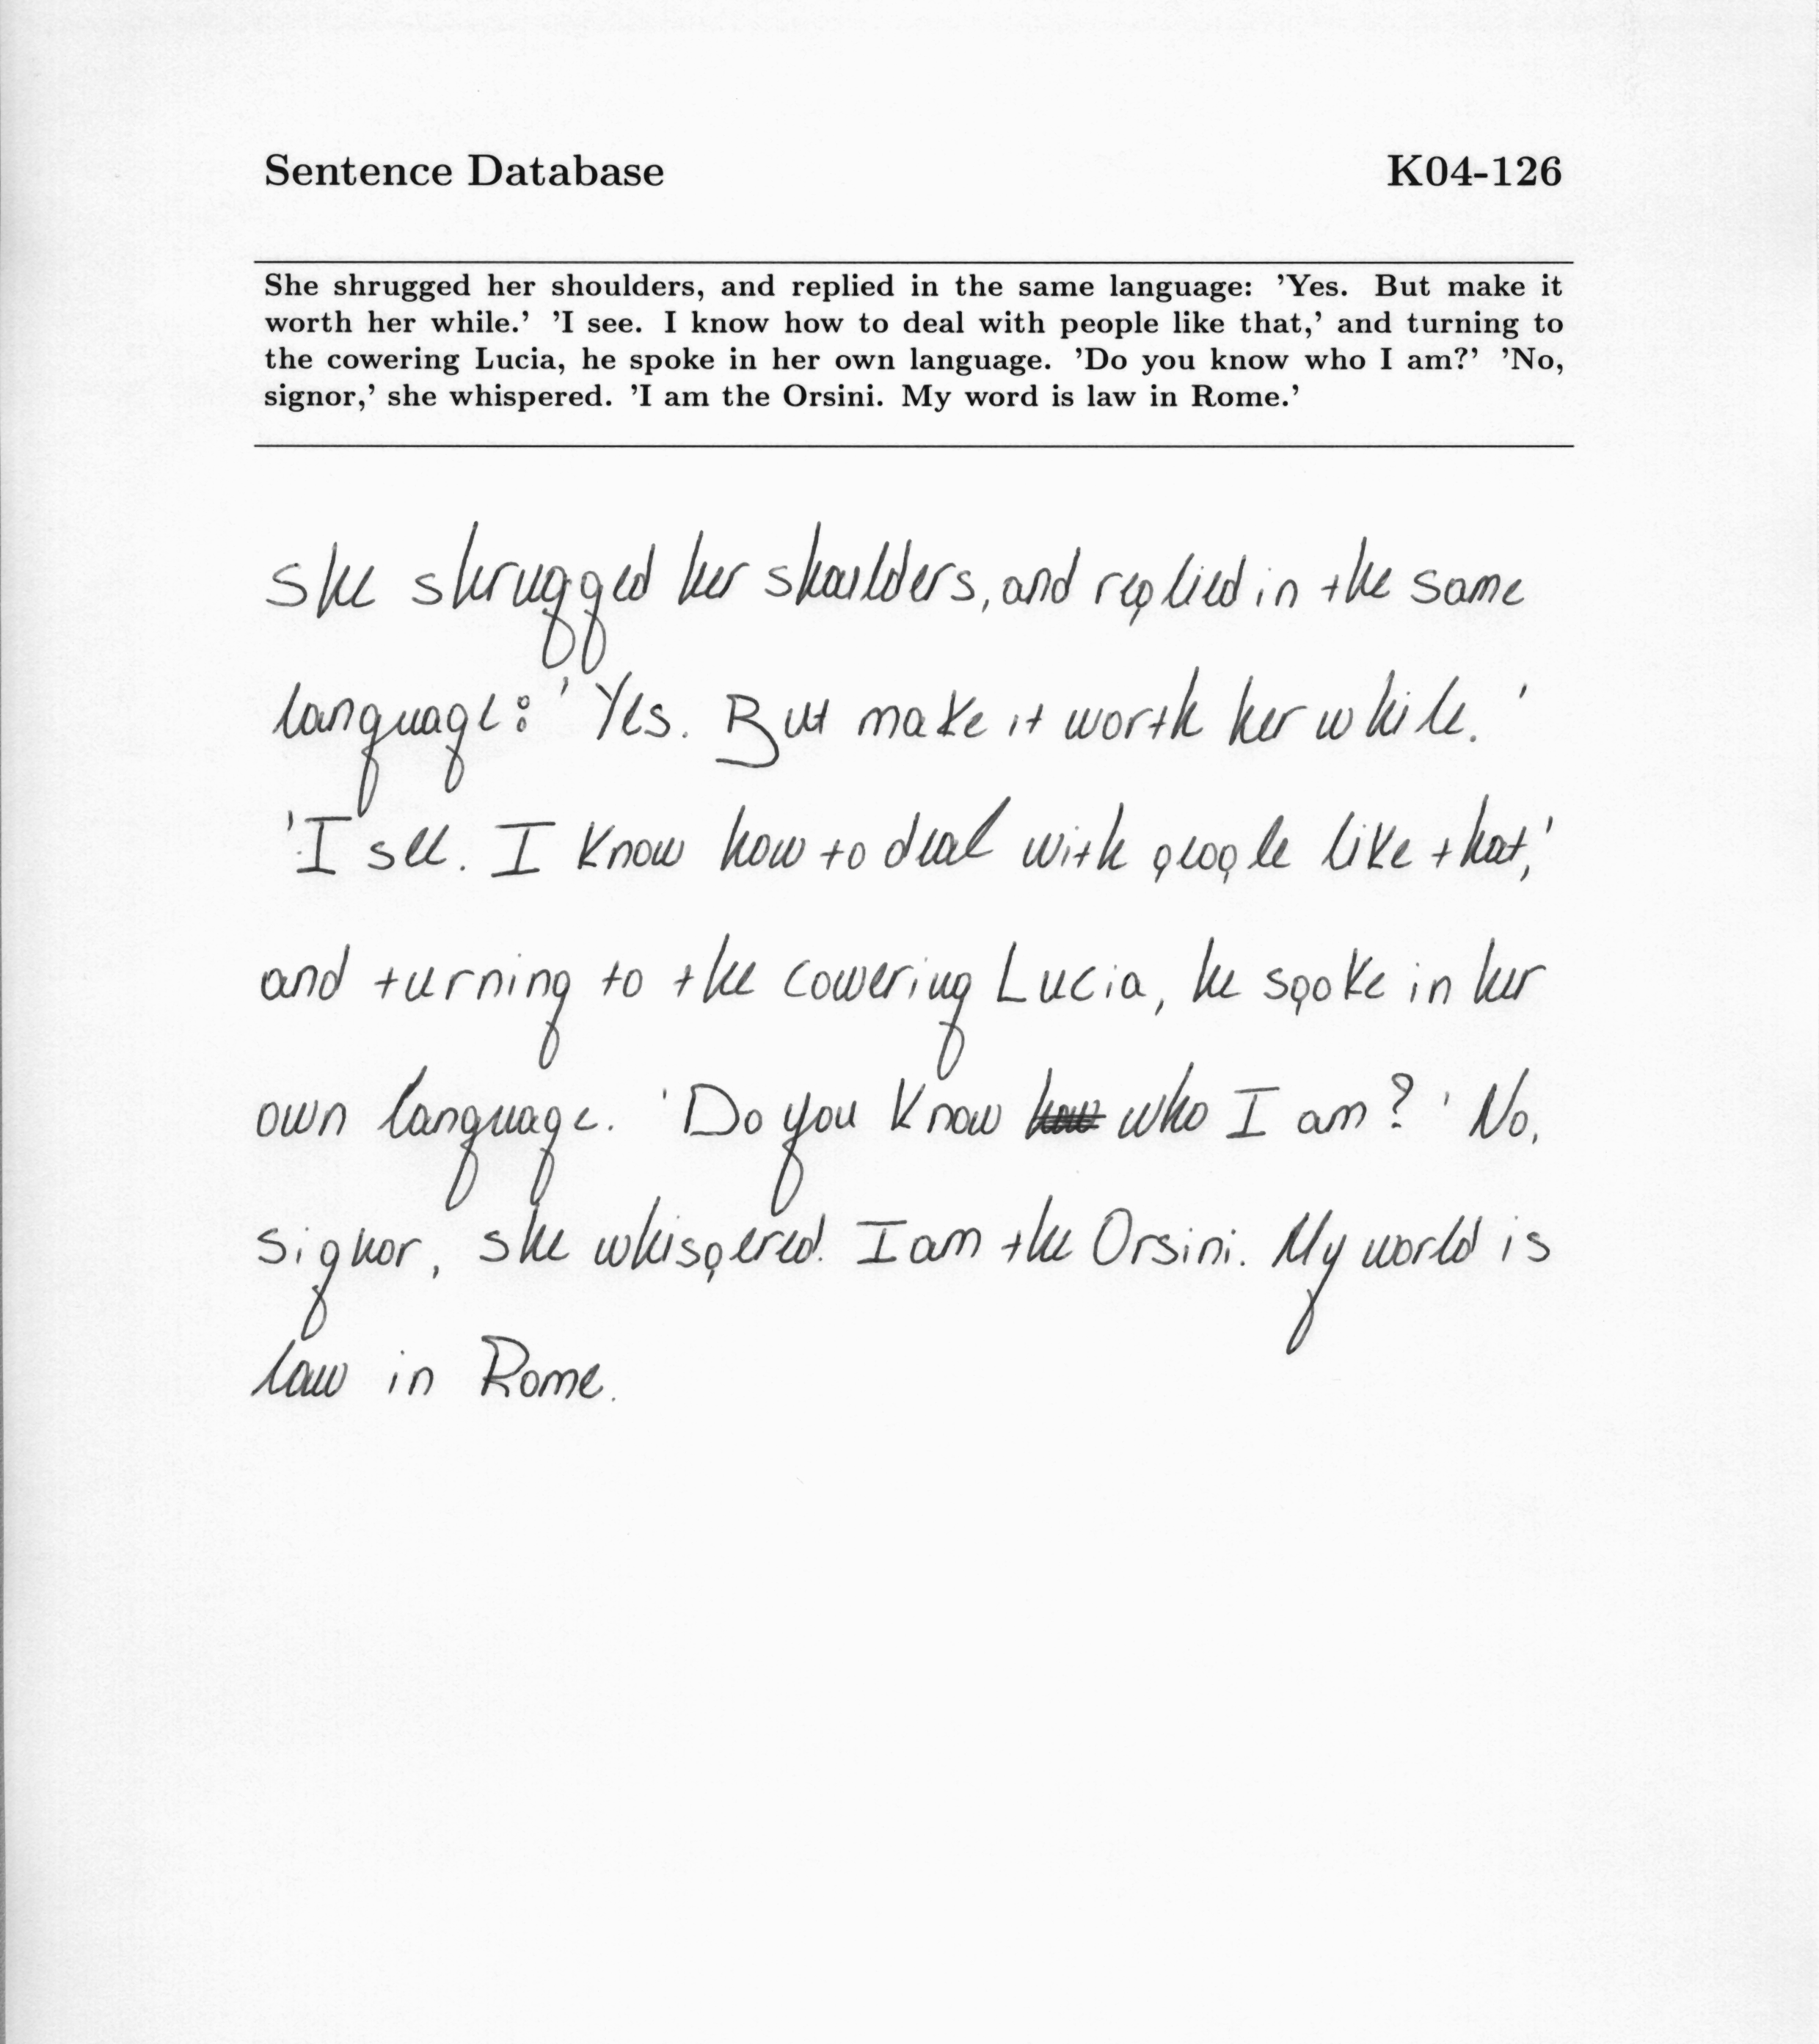 Sentence Database K04-126
She shrugged her shoulders, and replied in the same language: 'Yes. But make it
worth her while.' 'I see. I know how to deal with people like that,' and turning to
the cowering Lucia, he spoke in her own language. 'Do you know who I am?' 'No,
signor,' she whispered. 'I am the Orsini. My word is law in Rome.'
She shrugged her shoulders, and replied in the same
language: ' Yes. But make it worth her while. '
'I see. I know how to deal with people like that,'
and turning to the cowering Lucia, he spoke in her
own language. 'Do you know who I am? ' No,
signor, she whispered. I am the Orsini. My world is
law in Rome.